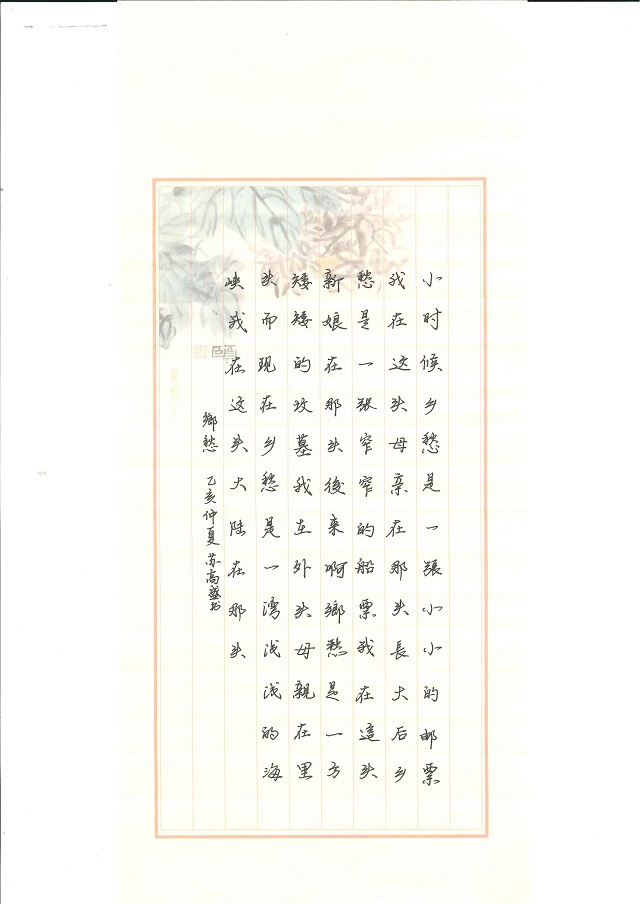 小时候乡愁是一張小小的邮票
我在这头母亲在那头長大后乡
愁是一张窄窄的船票我在這头
新娘在那头後来啊鄉愁是一方
矮矮的坟墓我在外头母親在里
头而现在乡愁是一湾浅浅的海
峡我在这头大陆在那头
鄉愁 乙亥仲夏苏高盛书